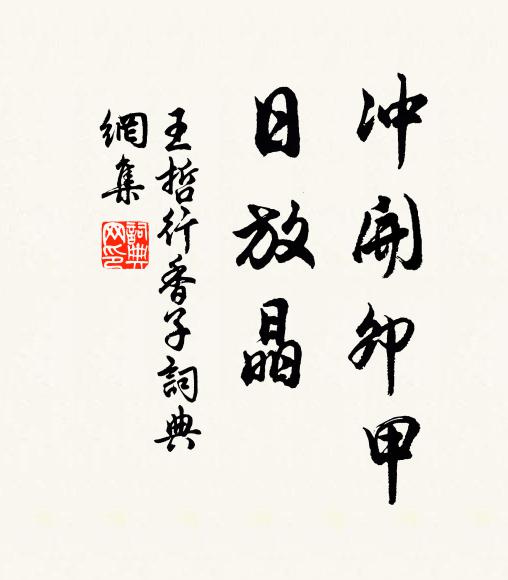 冲開卯甲
日放晶
王哲行香子詞典
網集
詞典
网印